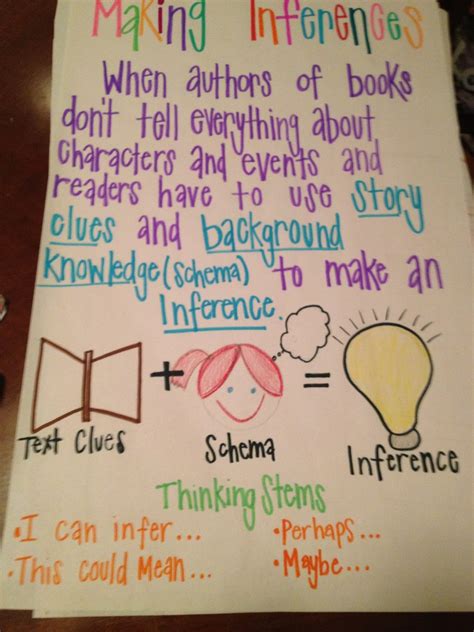 Making Inferences
When authors of books
don't tell everything about
characters and events and
readers have to use story
clues and background
knowledge (schema) to make an
Inference.
+ =
Text Clues Schema Inference
Thinking Stems
• I can infer... • Perhaps...
• This could Mean... • Maybe...